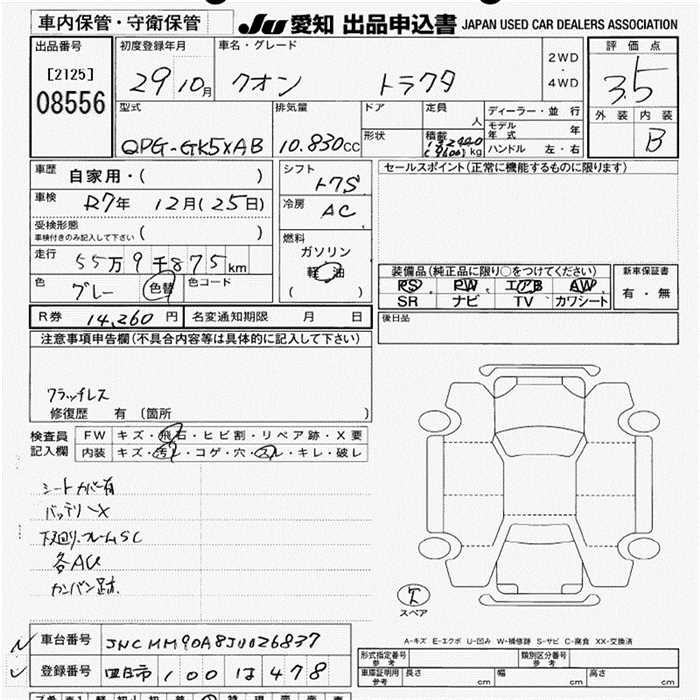 車内保管・守衛保管
JU 愛知 出品申込書 JAPAN USED CAR DEALERS ASSOCIATION
出品番号
[2125]
08556
初度登録年月
29 10月
車名・グレード
クオン トラクタ
2WD
・
4WD
評価点
3.5
外装 内装
B
型式
QPG-GK5XAB
排気量
10.830cc
ドア
形状
定員
人
積載
kg
ディーラー・並行
モデル年式 年
ハンドル 左・右
車歴
自家用・( )
車検
R7年 12月(25日)
受検形態
車検付きのみ記入して下さい ( )
走行
55万9千875km
色
グレー
色替
色コード
シフト
ト7S
冷房
AC
燃料
ガソリン
軽油
( )
セールスポイント(正常に機能するものに限ります)
装備品(純正品に限り○をつけてください)
PS PW エアB AW
SR ナビ TV カワシート
新車保証書
有・無
R券 14,260円
名変通知期限 月 日
後日品
注意事項申告欄(不具合内容等は具体的に記入して下さい)
クラッチレス
修復歴 有 (箇所 )
検査員記入欄
FW キズ・飛石・ヒビ割・リペア跡・X要
内装 キズ・汚レ・コゲ・穴・スレ・キレ・破レ
シートカバー有
バッテリーX
下廻り、フレームSC
各AU
カンバン跡
スペア
A-キズ E-エクボ U-凹み W-補修跡 S-サビ C-腐食 XX-交換済
車台番号 JNCMM90A8JU026837
登録番号 四日市 100 は 478
型式指定番号
参考
類別区分番号
参考
車庫証明用
参考
長さ cm 幅 cm 高さ cm